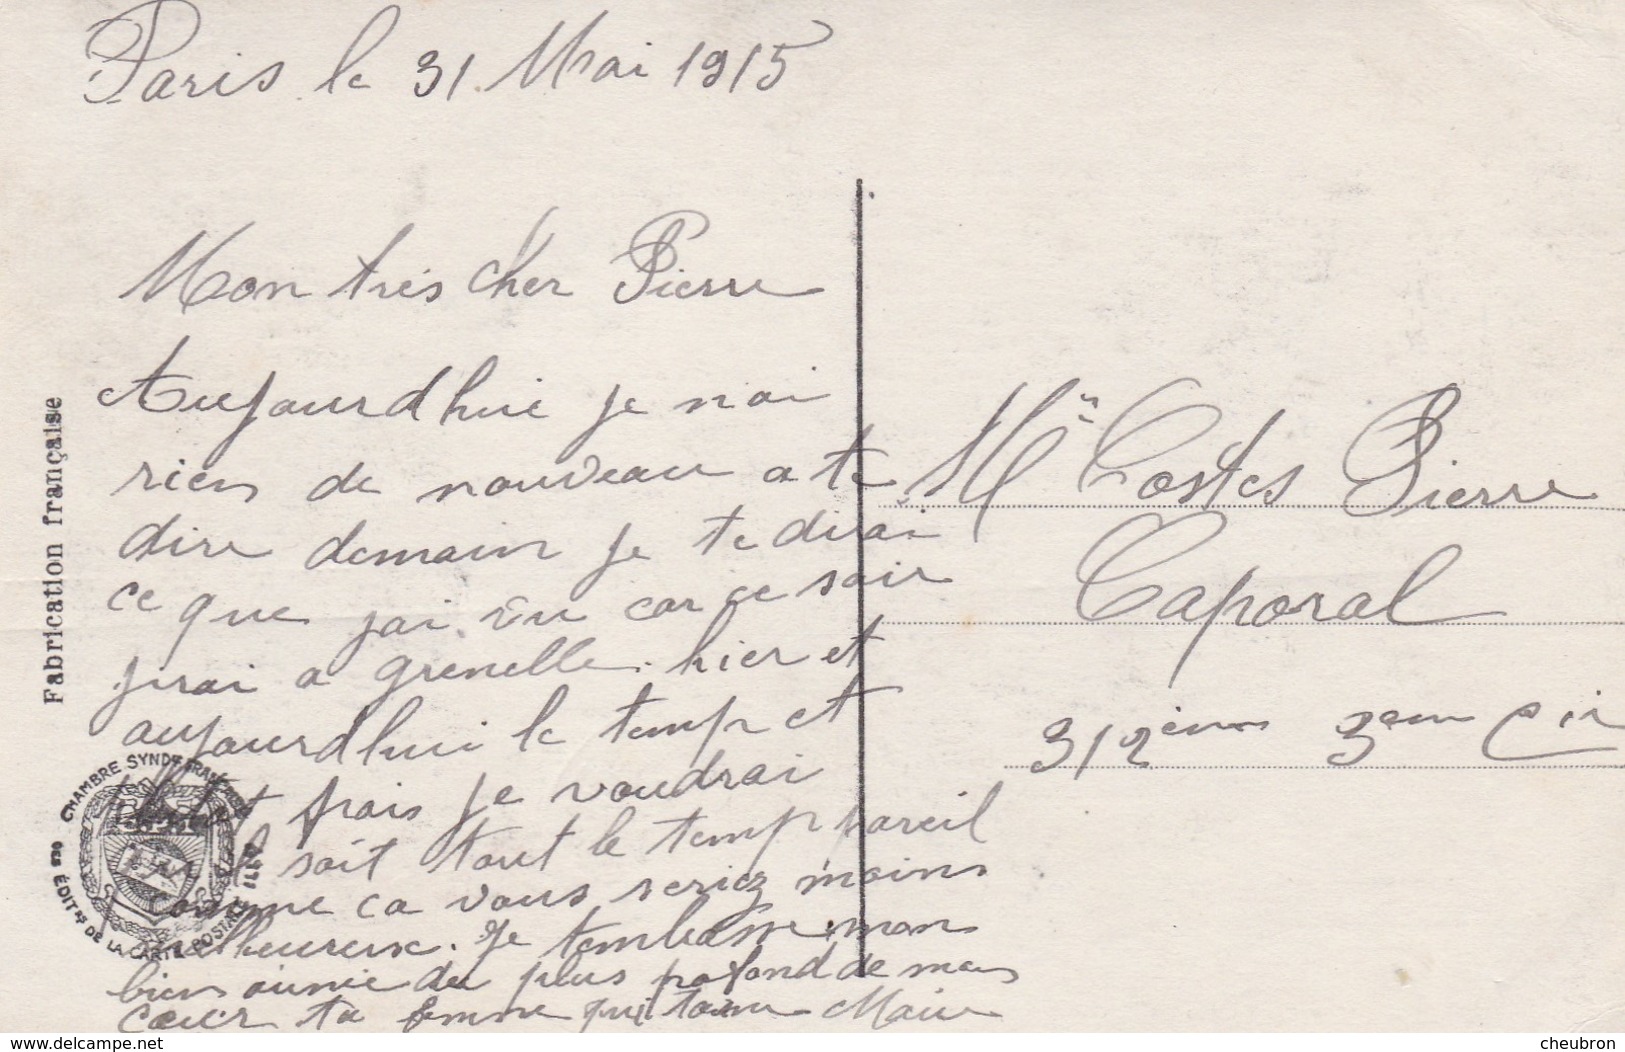 Paris le 31 Mai 1915
Mon très cher Pierre
Aujourdhui je nai
rien de nouveau a te
dire demain je te dirai
ce que jai vu car ce soir
jirai a grenelle. hier et
aujourdhui le temp et
frais je voudrai
soit tout le temp pareil
comme ca vous seriez moins
malheureux. Je tembrasse mon
bien aimé du plus profond de mon
cœur ta femme qui taime Marie
Mr Costes Pierre
Caporal
312ème 3ème Cie
Fabrication française
CHAMBRE SYND FRANÇAISE
DES ÉDITRS DE LA CARTE POSTALE ILLÉE
delcampe.net
cheubron